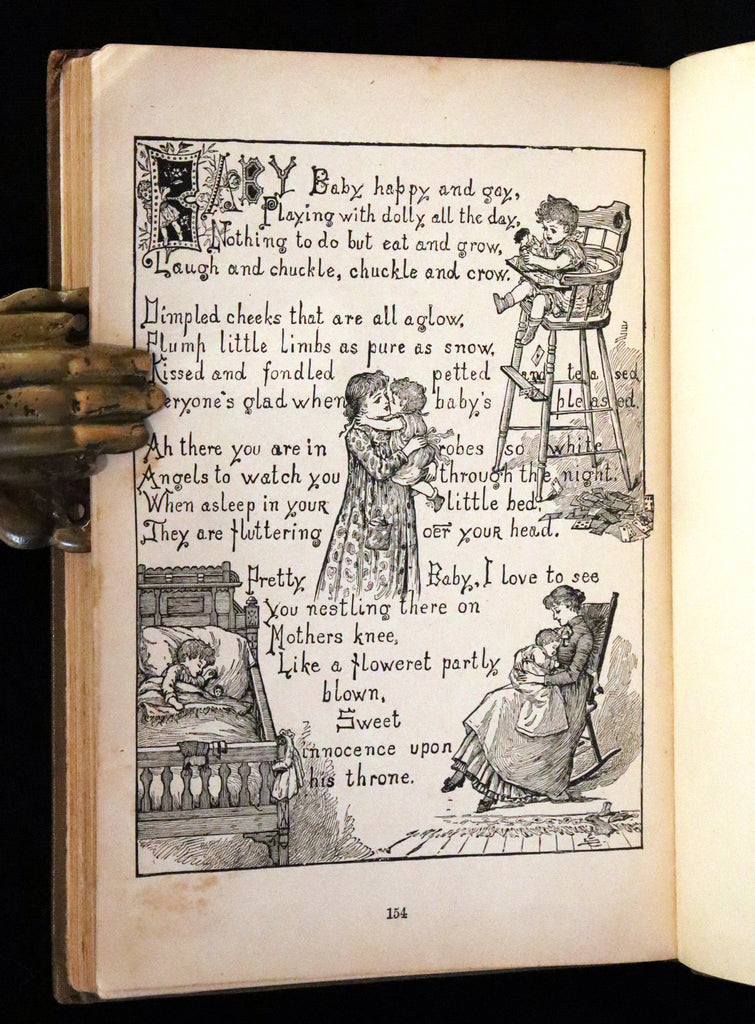 BABY Baby happy and gay,
Playing with dolly all the day,
Nothing to do but eat and grow,
Laugh and chuckle, chuckle and crow.
Dimpled cheeks that are all aglow,
Plump little limbs as pure as snow,
Kissed and fondled petted and teased
Everyone's glad when baby's pleased.
Ah there you are in robes so white
Angels to watch you through the night.
When asleep in your little bed,
They are fluttering o'er your head.
Pretty Baby, I love to see
You nestling there on
Mothers knee,
Like a floweret partly
blown,
Sweet
innocence upon
his throne.
154